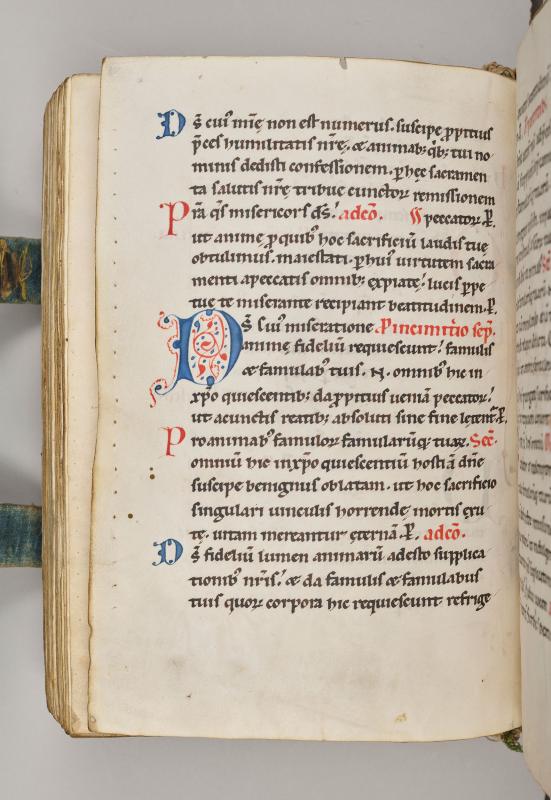 Ds̄ cui᷒ mīe non est numerus. suscipe ꝓpitius
p̄ces humilitatis nr̄ę. & animab; qb; tui no
minis dedisti confessionem. ꝑ hęc sacramen
ta salutis nr̄ę tribue cunctoꝝ remissionem
Pr̄a qs misericors ds̄! adcō. peccatoꝝ. P̱.
ut animę ꝓ quib᷒ hoc sacrificiū laudis tuę
obtulimus. maiestati. ꝑ hui᷒ virtutem sacra
menti a peccatis omnib; expiatę! lucis ꝑpe
tuę te miserante recipiant beatitudinem. P̱.
Ds̄ cui᷒ miseratione Pro in cimit̄io sep̄.
animę fidelium requiescunt! famulis
& famulab᷒ tuis. N. omnib᷒ hic in
xp̄o quiescentib; da ꝓpitius ueniā peccatoꝝ!
ut a cunctis reatib; absoluti sine fine lęt̄ent̄. P̱.
Pro animab᷒ famuloꝝ famularūq; tuaꝝ. Sēc.
omniū hic in xp̄o quiescentiū hostiā dn̄e
suscipe benignus oblatam. ut hoc sacrificio
singulari uinculis horrendę mortis exu
tę. uitam mereantur ęternā. P̱. adcō.
Ds̄ fideliū lumen animarū adesto supplica
tionib᷒ nr̄is! & da famulis & famulabus
tuis quoꝝ corpora hic requiescunt. refrige